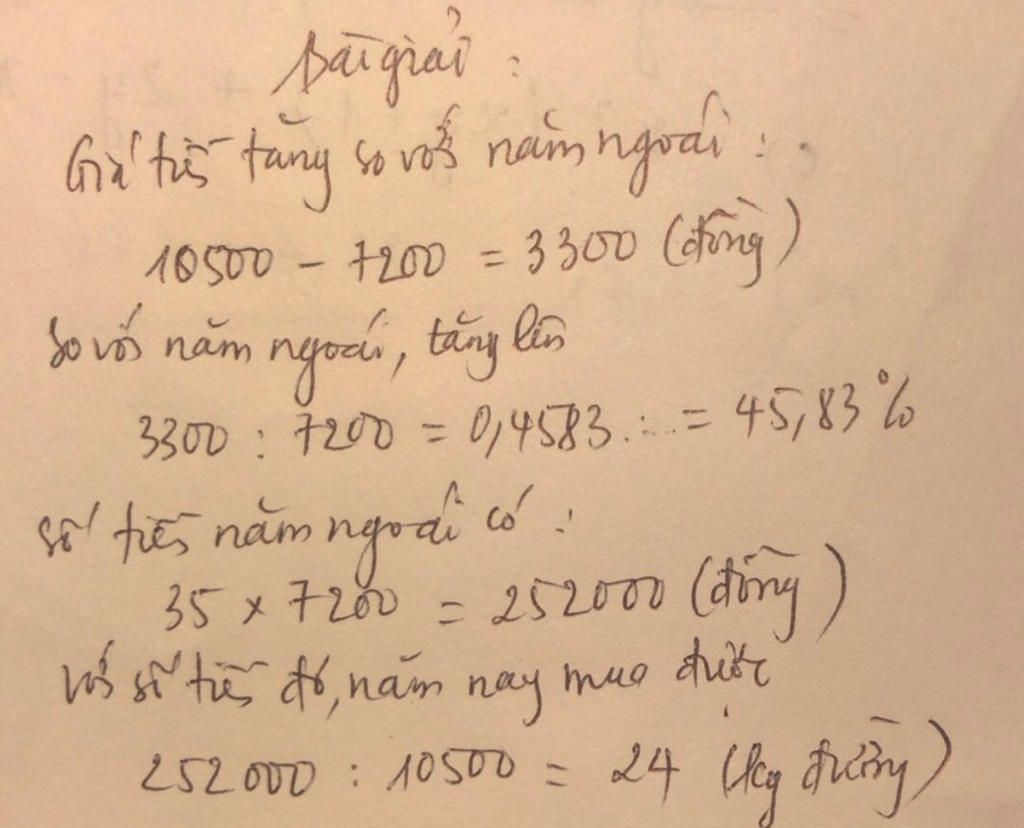 Bài giải :
Giá tiền tăng so với năm ngoái :
10500 - 7200 = 3300 (đồng)
So với năm ngoái, tăng lên
3300 : 7200 = 0,4583... = 45,83%
Số tiền năm ngoái có :
35 x 7200 = 252000 (đồng)
Với số tiền đó, năm nay mua được
252000 : 10500 = 24 (kg đường)